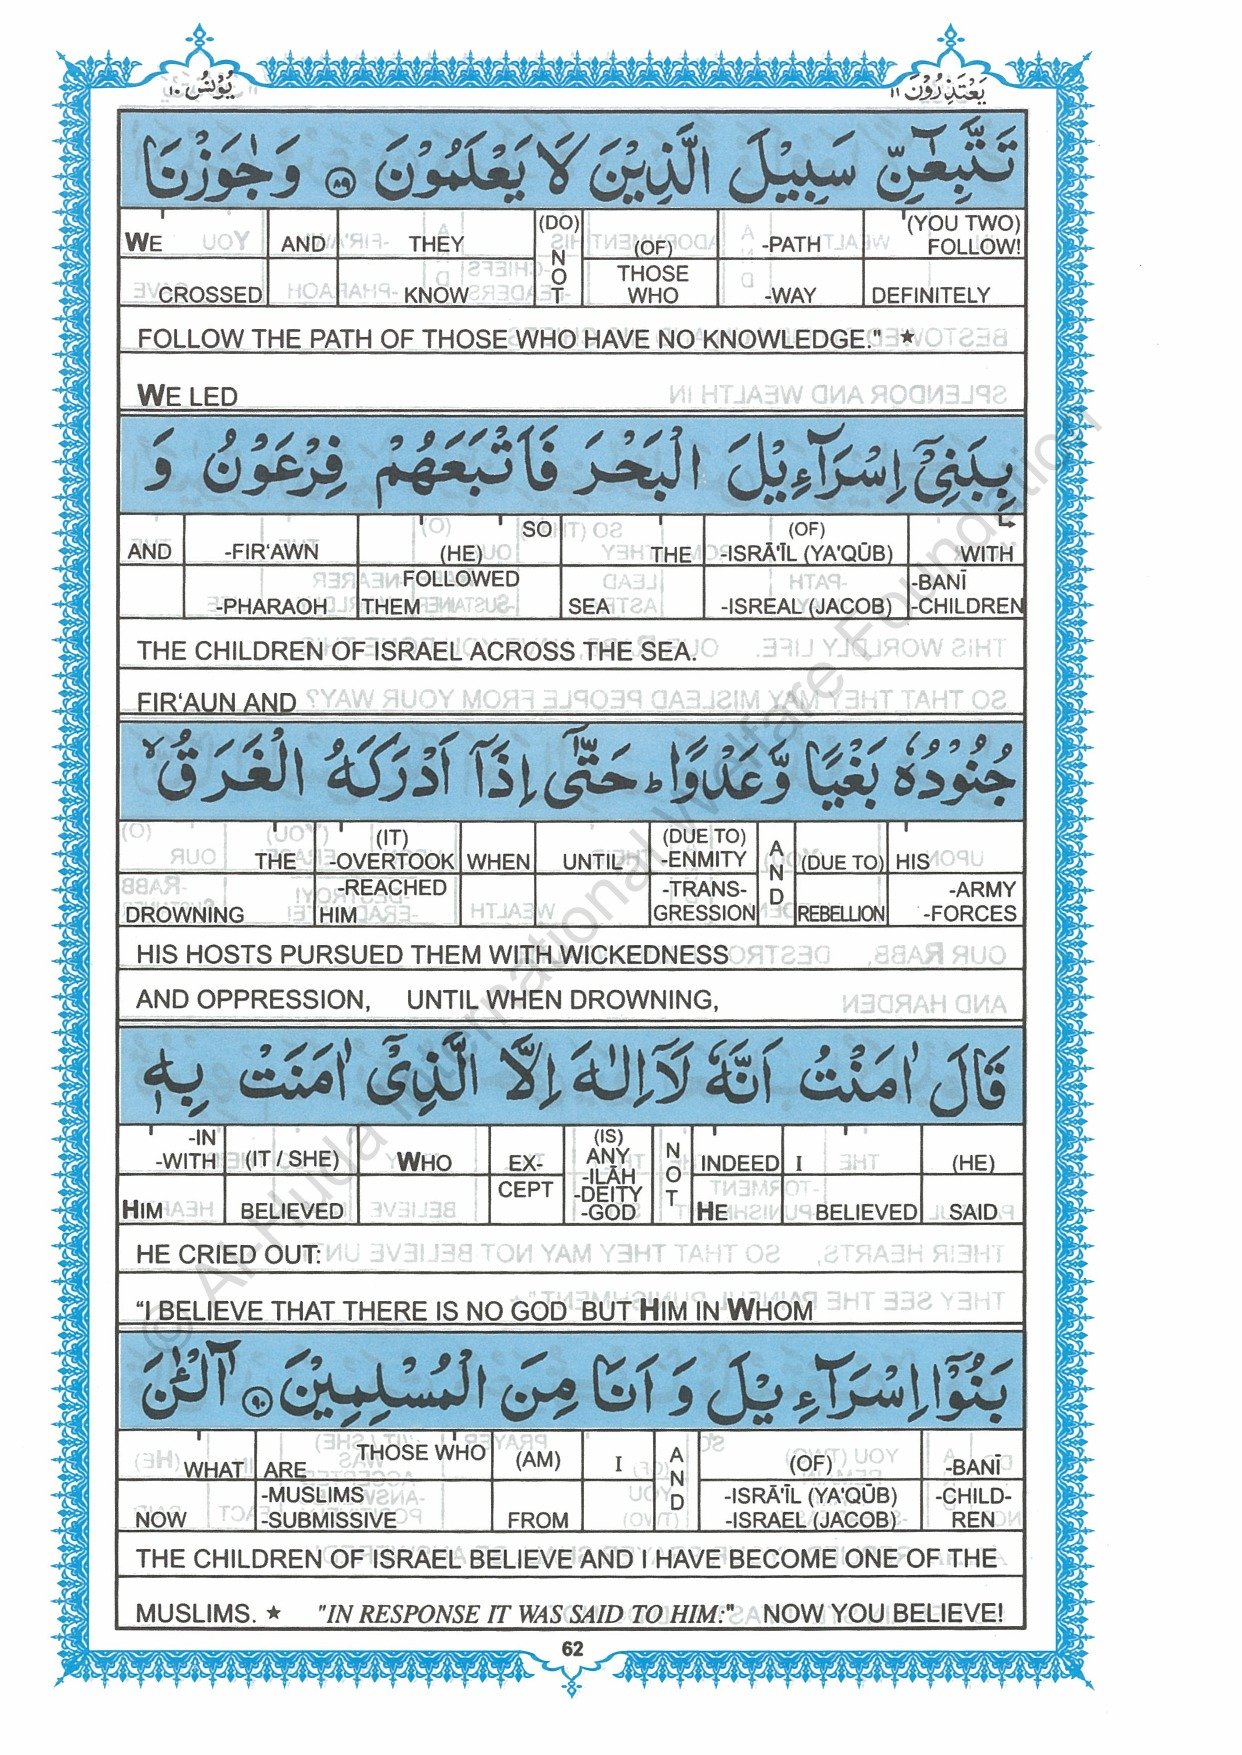 يُوْنُس ١٠
يَعْتَذِرُوْنَ ١١
تَتَّبِعٰٓنِّ سَبِيْلَ الَّذِيْنَ لَا يَعْلَمُوْنَ ﴿٨٩﴾ وَجٰوَزْنَا
WE AND THEY (DO) NOT (OF) -PATH (YOU TWO) FOLLOW!
CROSSED KNOW THOSE WHO -WAY DEFINITELY
FOLLOW THE PATH OF THOSE WHO HAVE NO KNOWLEDGE." ★
WE LED
بِبَنِيْٓ اِسْرَآءِيْلَ الْبَحْرَ فَاَتْبَعَهُمْ فِرْعَوْنُ وَ
AND -FIR‘AWN (HE) SO THE (OF) -ISRĀ'ĪL (YA'QŪB) WITH
-PHARAOH FOLLOWED THEM SEA -ISREAL (JACOB) -BANĪ -CHILDREN
THE CHILDREN OF ISRAEL ACROSS THE SEA.
FIR‘AUN AND
جُنُوْدُهٗ بَغْيًا وَّعَدْوًا ؕ حَتّٰٓى اِذَآ اَدْرَكَهُ الْغَرَقُ ۙ
THE (IT) -OVERTOOK WHEN UNTIL (DUE TO) -ENMITY AND (DUE TO) HIS
DROWNING -REACHED HIM -TRANS-GRESSION REBELLION -ARMY -FORCES
HIS HOSTS PURSUED THEM WITH WICKEDNESS
AND OPPRESSION, UNTIL WHEN DROWNING,
قَالَ اٰمَنْتُ اَنَّهٗ لَآ اِلٰهَ اِلَّا الَّذِيْٓ اٰمَنَتْ بِهٖ
-IN -WITH (IT / SHE) WHO EX- (IS) ANY -ILĀH NOT INDEED I (HE)
HIM BELIEVED CEPT -DEITY -GOD HE BELIEVED SAID
HE CRIED OUT:
“I BELIEVE THAT THERE IS NO GOD BUT HIM IN WHOM
بَنُوْٓا اِسْرَآءِيْلَ وَ اَنَا مِنَ الْمُسْلِمِيْنَ ﴿٩٠﴾ آٰلْـٰٔنَ
WHAT ARE THOSE WHO (AM) I AND (OF) -BANĪ
NOW -MUSLIMS -SUBMISSIVE FROM -ISRĀ'ĪL (YA'QŪB) -ISRAEL (JACOB) -CHILD-REN
THE CHILDREN OF ISRAEL BELIEVE AND I HAVE BECOME ONE OF THE
MUSLIMS. ★ "IN RESPONSE IT WAS SAID TO HIM:" NOW YOU BELIEVE!
62
© Al-Huda International Welfare Foundation